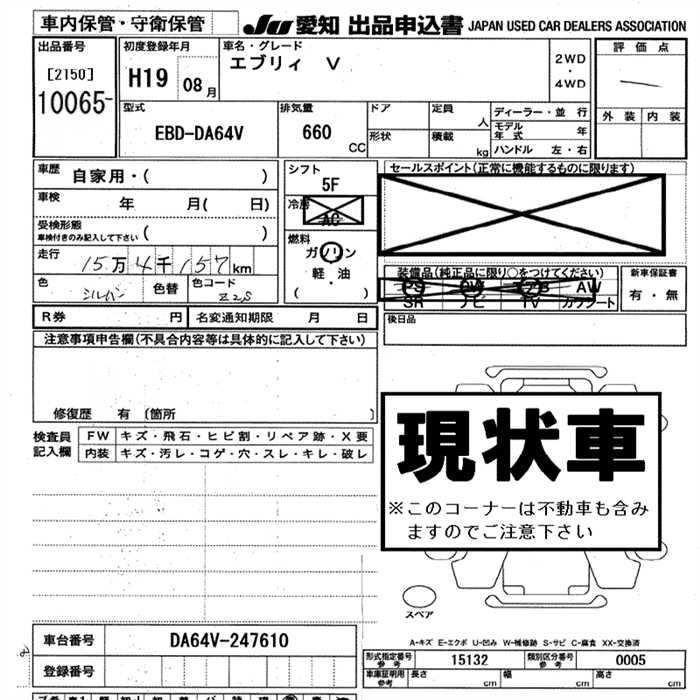 車内保管・守衛保管
JU 愛知 出品申込書 JAPAN USED CAR DEALERS ASSOCIATION
出品番号
[2150]
10065-
初度登録年月
H19 08月
車名・グレード
エブリィ V
2WD
・
4WD
評価点
外装 内装
型式
EBD-DA64V
排気量
660
CC
ドア
形状
定員
人
積載
kg
ディーラー・並行
モデル年式 年
ハンドル 左・右
車歴
自家用・( )
車検 年 月( 日)
受検形態
車検付きのみ記入して下さい ( )
走行 15万4千157km
色 シルバー 色替 色コード Z2S
シフト
5F
冷房
AC
燃料
ガソリン
軽・油
( )
セールスポイント(正常に機能するものに限ります)
装備品(純正品に限り○をつけてください)
PS PW エアB AW
SR ナビ TV カワシート
新車保証書
有・無
後日品
R券 円 名変通知期限 月 日
注意事項申告欄(不具合内容等は具体的に記入して下さい)
修復歴 有 〔箇所 〕
検査員
記入欄
FW キズ・飛石・ヒビ割・リペア跡・X要
内装 キズ・汚レ・コゲ・穴・スレ・キレ・破レ
現状車
※このコーナーは不動車も含み
ますのでご注意下さい
スペア
A-キズ E-エクボ U-凹み W-補修跡 S-サビ C-腐食 XX-交換済
車台番号 DA64V-247610
登録番号
型式指定番号
参考
15132
類別区分番号
参考
0005
車庫証明用
参考
長さ cm 幅 cm 高さ cm